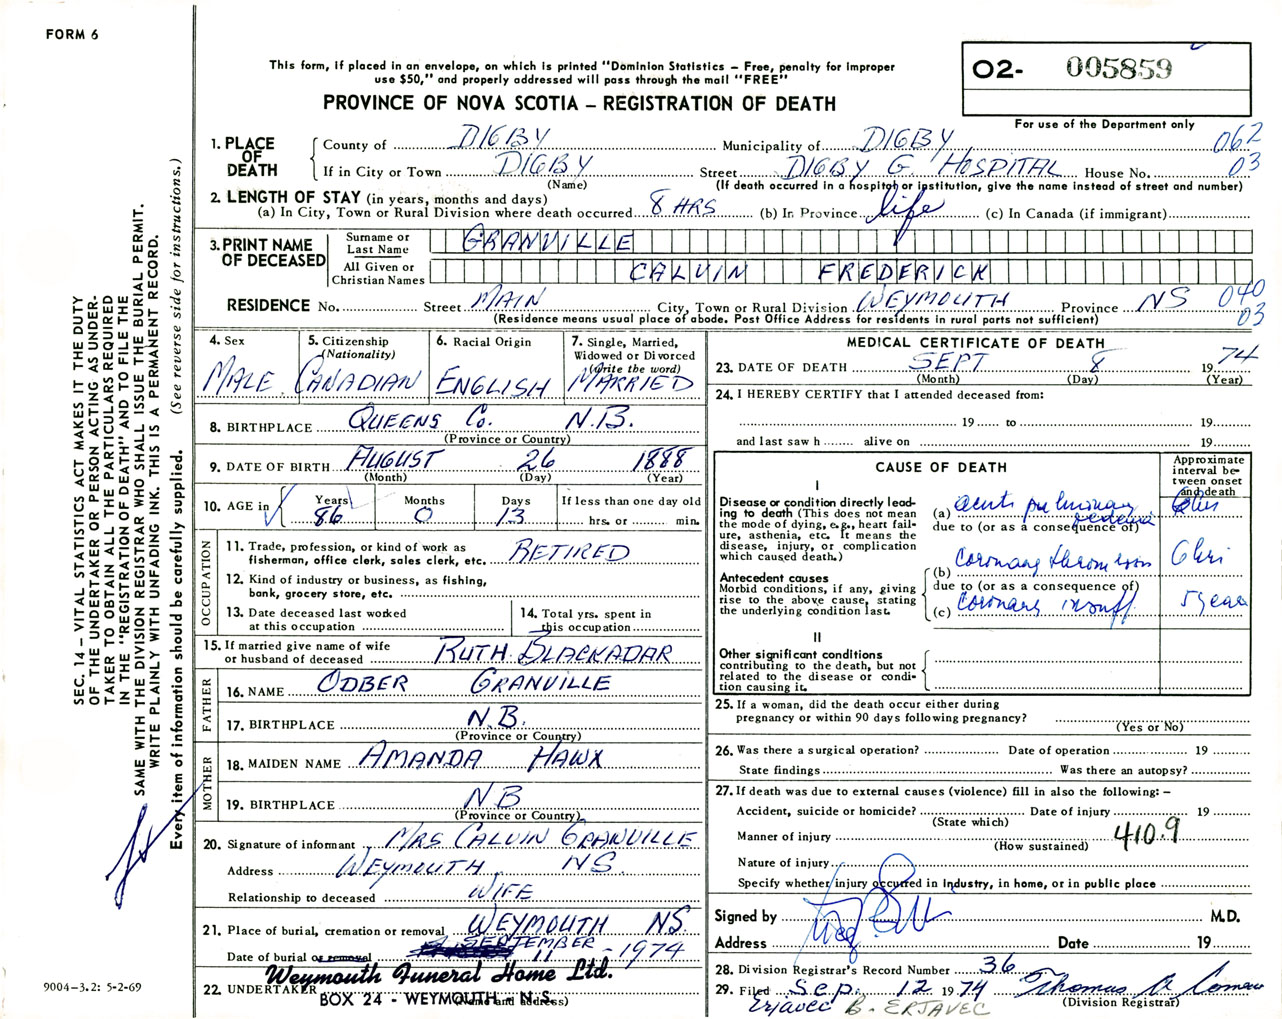 FORM 6
This form, if placed in an envelope, on which is printed "Dominion Statistics – Free, penalty for improper
use $50," and properly addressed will pass through the mail "FREE"
PROVINCE OF NOVA SCOTIA – REGISTRATION OF DEATH
02- 005859
For use of the Department only
SEC. 14 – VITAL STATISTICS ACT MAKES IT THE DUTY
OF THE UNDERTAKER OR PERSON ACTING AS UNDER-
TAKER TO OBTAIN ALL THE PARTICULARS REQUIRED
IN THE "REGISTRATION OF DEATH" AND TO FILE THE
SAME WITH THE DIVISION REGISTRAR WHO SHALL ISSUE THE BURIAL PERMIT.
WRITE PLAINLY WITH UNFADING INK. THIS IS A PERMANENT RECORD.
Every item of information should be carefully supplied. (See reverse side for instructions.)
1. PLACE OF DEATH
County of DIGBY Municipality of DIGBY 062
If in City or Town DIGBY Street DIGBY G. HOSPITAL House No. 03
(Name) (If death occurred in a hospital or institution, give the name instead of street and number)
2. LENGTH OF STAY (in years, months and days)
(a) In City, Town or Rural Division where death occurred 8 HRS (b) In Province life (c) In Canada (if immigrant)
3. PRINT NAME OF DECEASED
Surname or Last Name GRANVILLE
All Given or Christian Names CALVIN FREDERICK
RESIDENCE No. Street MAIN City, Town or Rural Division WEYMOUTH Province NS 040
(Residence means usual place of abode. Post Office Address for residents in rural parts not sufficient) 03
4. Sex MALE
5. Citizenship (Nationality) CANADIAN
6. Racial Origin ENGLISH
7. Single, Married, Widowed or Divorced (Write the word) MARRIED
8. BIRTHPLACE QUEENS Co. N.B.
(Province or Country)
9. DATE OF BIRTH AUGUST 26 1888
(Month) (Day) (Year)
10. AGE in Years 86 Months 0 Days 13 If less than one day old
hrs. or min.
OCCUPATION
11. Trade, profession, or kind of work as
fisherman, office clerk, sales clerk, etc. RETIRED
12. Kind of industry or business, as fishing,
bank, grocery store, etc.
13. Date deceased last worked
at this occupation
14. Total yrs. spent in
this occupation
15. If married give name of wife
or husband of deceased RUTH BLACKADAR
FATHER
16. NAME ODBER GRANVILLE
17. BIRTHPLACE N.B.
(Province or Country)
MOTHER
18. MAIDEN NAME AMANDA HAWX
19. BIRTHPLACE NB
(Province or Country)
20. Signature of informant MRS CALVIN GRANVILLE
Address WEYMOUTH NS.
Relationship to deceased WIFE
21. Place of burial, cremation or removal WEYMOUTH NS.
Date of burial or removal SEPTEMBER 11 - 1974
22. UNDERTAKER Weymouth Funeral Home Ltd.
BOX 24 - WEYMOUTH - N.S.
(Name and address)
9004-3.2: 5-2-69
MEDICAL CERTIFICATE OF DEATH
23. DATE OF DEATH SEPT 8 19 74
(Month) (Day) (Year)
24. I HEREBY CERTIFY that I attended deceased from:
19 to 19
and last saw h alive on 19
CAUSE OF DEATH
Approximate interval between onset and death
I
Disease or condition directly lead-
ing to death (This does not mean
the mode of dying, e.g., heart fail-
ure, asthenia, etc. It means the
disease, injury, or complication
which caused death.)
(a) acute pulmonary oedema 6 hrs
due to (or as a consequence of)
(b) coronary thrombosis 6 hrs
Antecedent causes
Morbid conditions, if any, giving
rise to the above cause, stating
the underlying condition last.
due to (or as a consequence of)
(c) coronary insuff 5 years
II
Other significant conditions
contributing to the death, but not
related to the disease or condi-
tion causing it.
25. If a woman, did the death occur either during
pregnancy or within 90 days following pregnancy?
(Yes or No)
26. Was there a surgical operation? Date of operation 19
State findings Was there an autopsy?
27. If death was due to external causes (violence) fill in also the following: –
Accident, suicide or homicide? Date of injury 19
(State which)
Manner of injury 410.9
(How sustained)
Nature of injury
Specify whether injury occurred in Industry, in home, or in public place
Signed by M.D.
Address Date 19
28. Division Registrar's Record Number 36
29. Filed Sep. 12 1974 Thomas
(Division Registrar)
Erjavec B. ERJAVEC